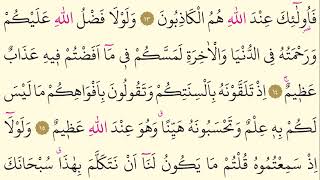 فَأُولَٰئِكَ عِنْدَ اللهِ هُمُ الْكَاذِبُونَ ﴿١٣﴾ وَلَوْلَا فَضْلُ اللهِ عَلَيْكُمْ
وَرَحْمَتُهُ فِي الدُّنْيَا وَالْاٰخِرَةِ لَمَسَّكُمْ فِي مَٓا اَفَضْتُمْ فِيهِ عَذَابٌ
عَظِيمٌۚ ﴿١٤﴾ اِذْ تَلَقَّوْنَهُ بِاَلْسِنَتِكُمْ وَتَقُولُونَ بِاَفْوَاهِكُمْ مَا لَيْسَ
لَكُمْ بِهِ عِلْمٌ وَتَحْسَبُونَهُ هَيِّنًاۗ وَهُوَ عِنْدَ اللهِ عَظِيمٌ ﴿١٥﴾ وَلَوْلَٓا
اِذْ سَمِعْتُمُوهُ قُلْتُمْ مَا يَكُونُ لَنَٓا اَنْ نَتَكَلَّمَ بِهٰذَاۗ سُبْحَانَكَ